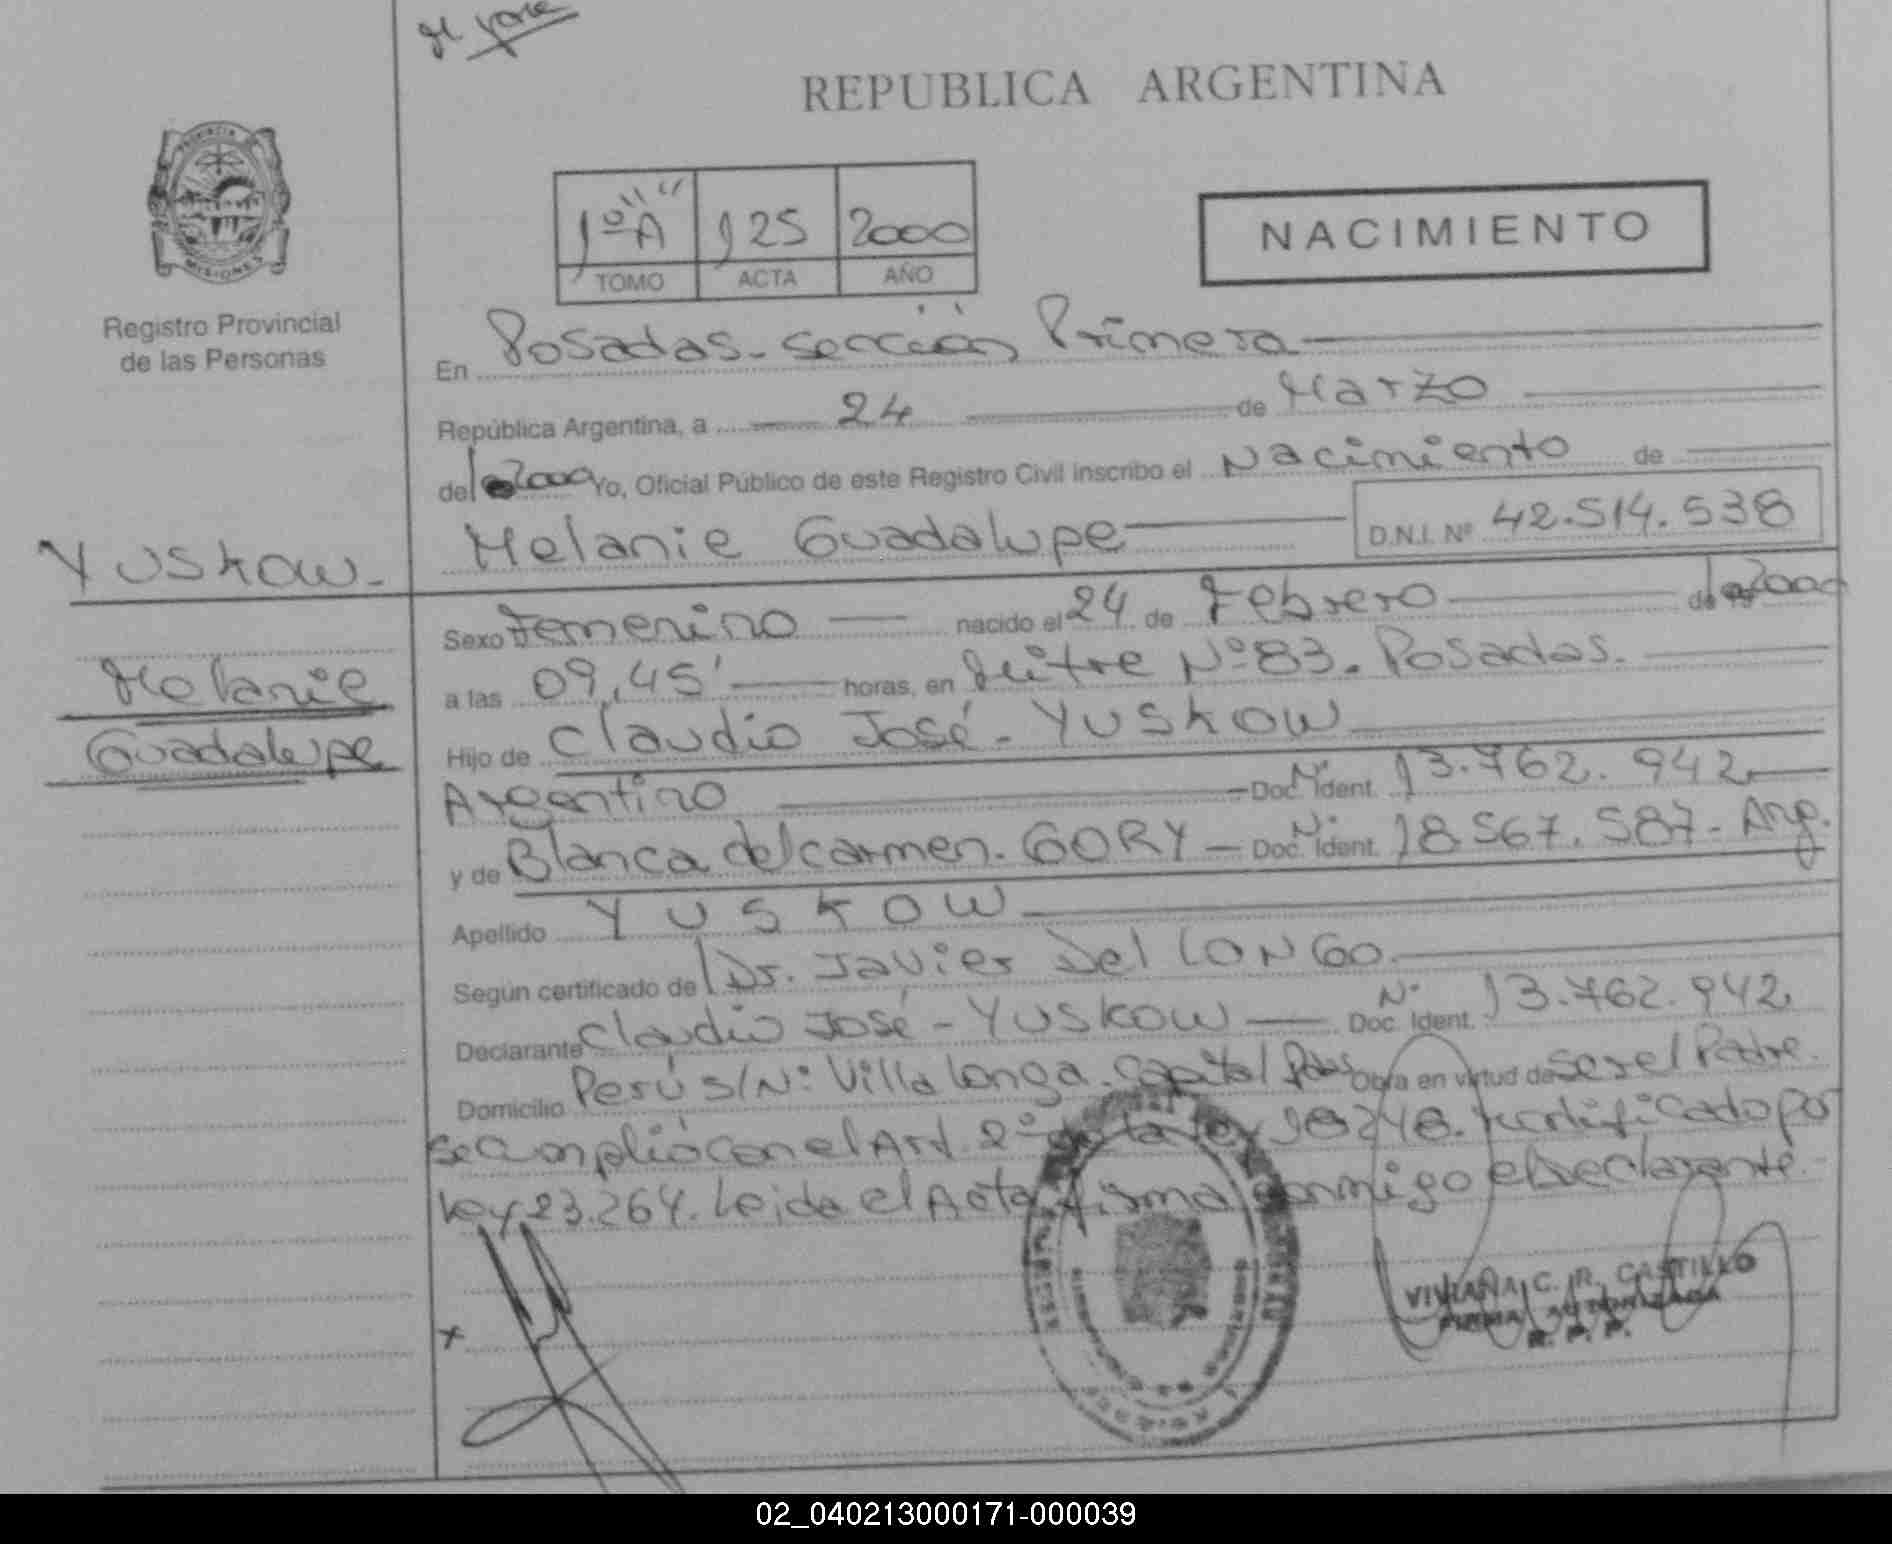 REPUBLICA ARGENTINA
PROVINCIA DE
MISIONES
Registro Provincial
de las Personas
1º "A" 125 2000
TOMO ACTA AÑO
NACIMIENTO
En Posadas - sección Primera
República Argentina, a 24 de Marzo
del 2000 Yo, Oficial Público de este Registro Civil inscribo el Nacimiento de
YUSKOW.
Melanie
Guadalupe
Melanie Guadalupe D.N.I. Nº 42.514.538
Sexo Femenino nacido el 24 de Febrero de 2000
a las 09,45' horas, en Mitre Nº 83. Posadas.
Hijo de Claudio José - YUSKOW
Argentino Doc. Nº Ident. 13.762.942
y de Blanca del carmen. GORY - Doc. Nº Ident. 18.567.587 - Arg.
Apellido YUSKOW
Según certificado de Dr. Javier Del LONGO.
Declarante Claudio José - YUSKOW Nº Doc. Ident. 13.762.942
Domicilio Perú s/Nº Villa Longa. Capital Pdas Obra en virtud de ser el Padre.
se cumplió con el Art. 2º de la ley 18248. rectificado por
ley 23.264. Leida el Acta, firma conmigo el Declarante.-
x
VIVIANA C. R. CASTILLO
FIRMA AUTORIZADA
R. P. P.
02_040213000171-000039